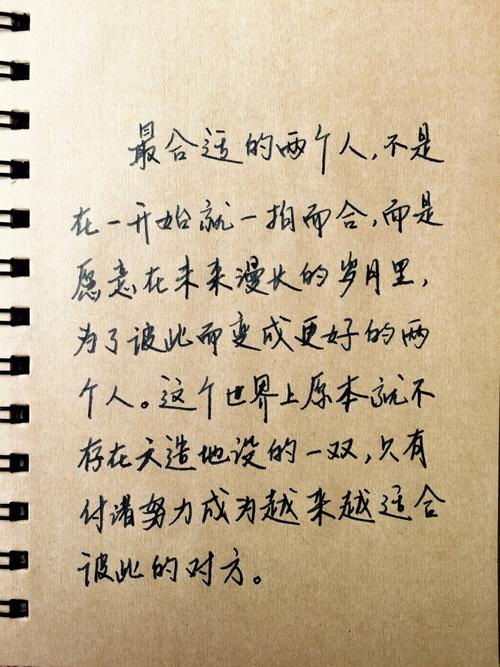 最合适的两个人，不是
在一开始就一拍而合，而是
愿意在未来漫长的岁月里，
为了彼此而变成更好的两
个人。这个世界上原本就不
存在天造地设的一双，只有
付诸努力成为越来越适合
彼此的对方。